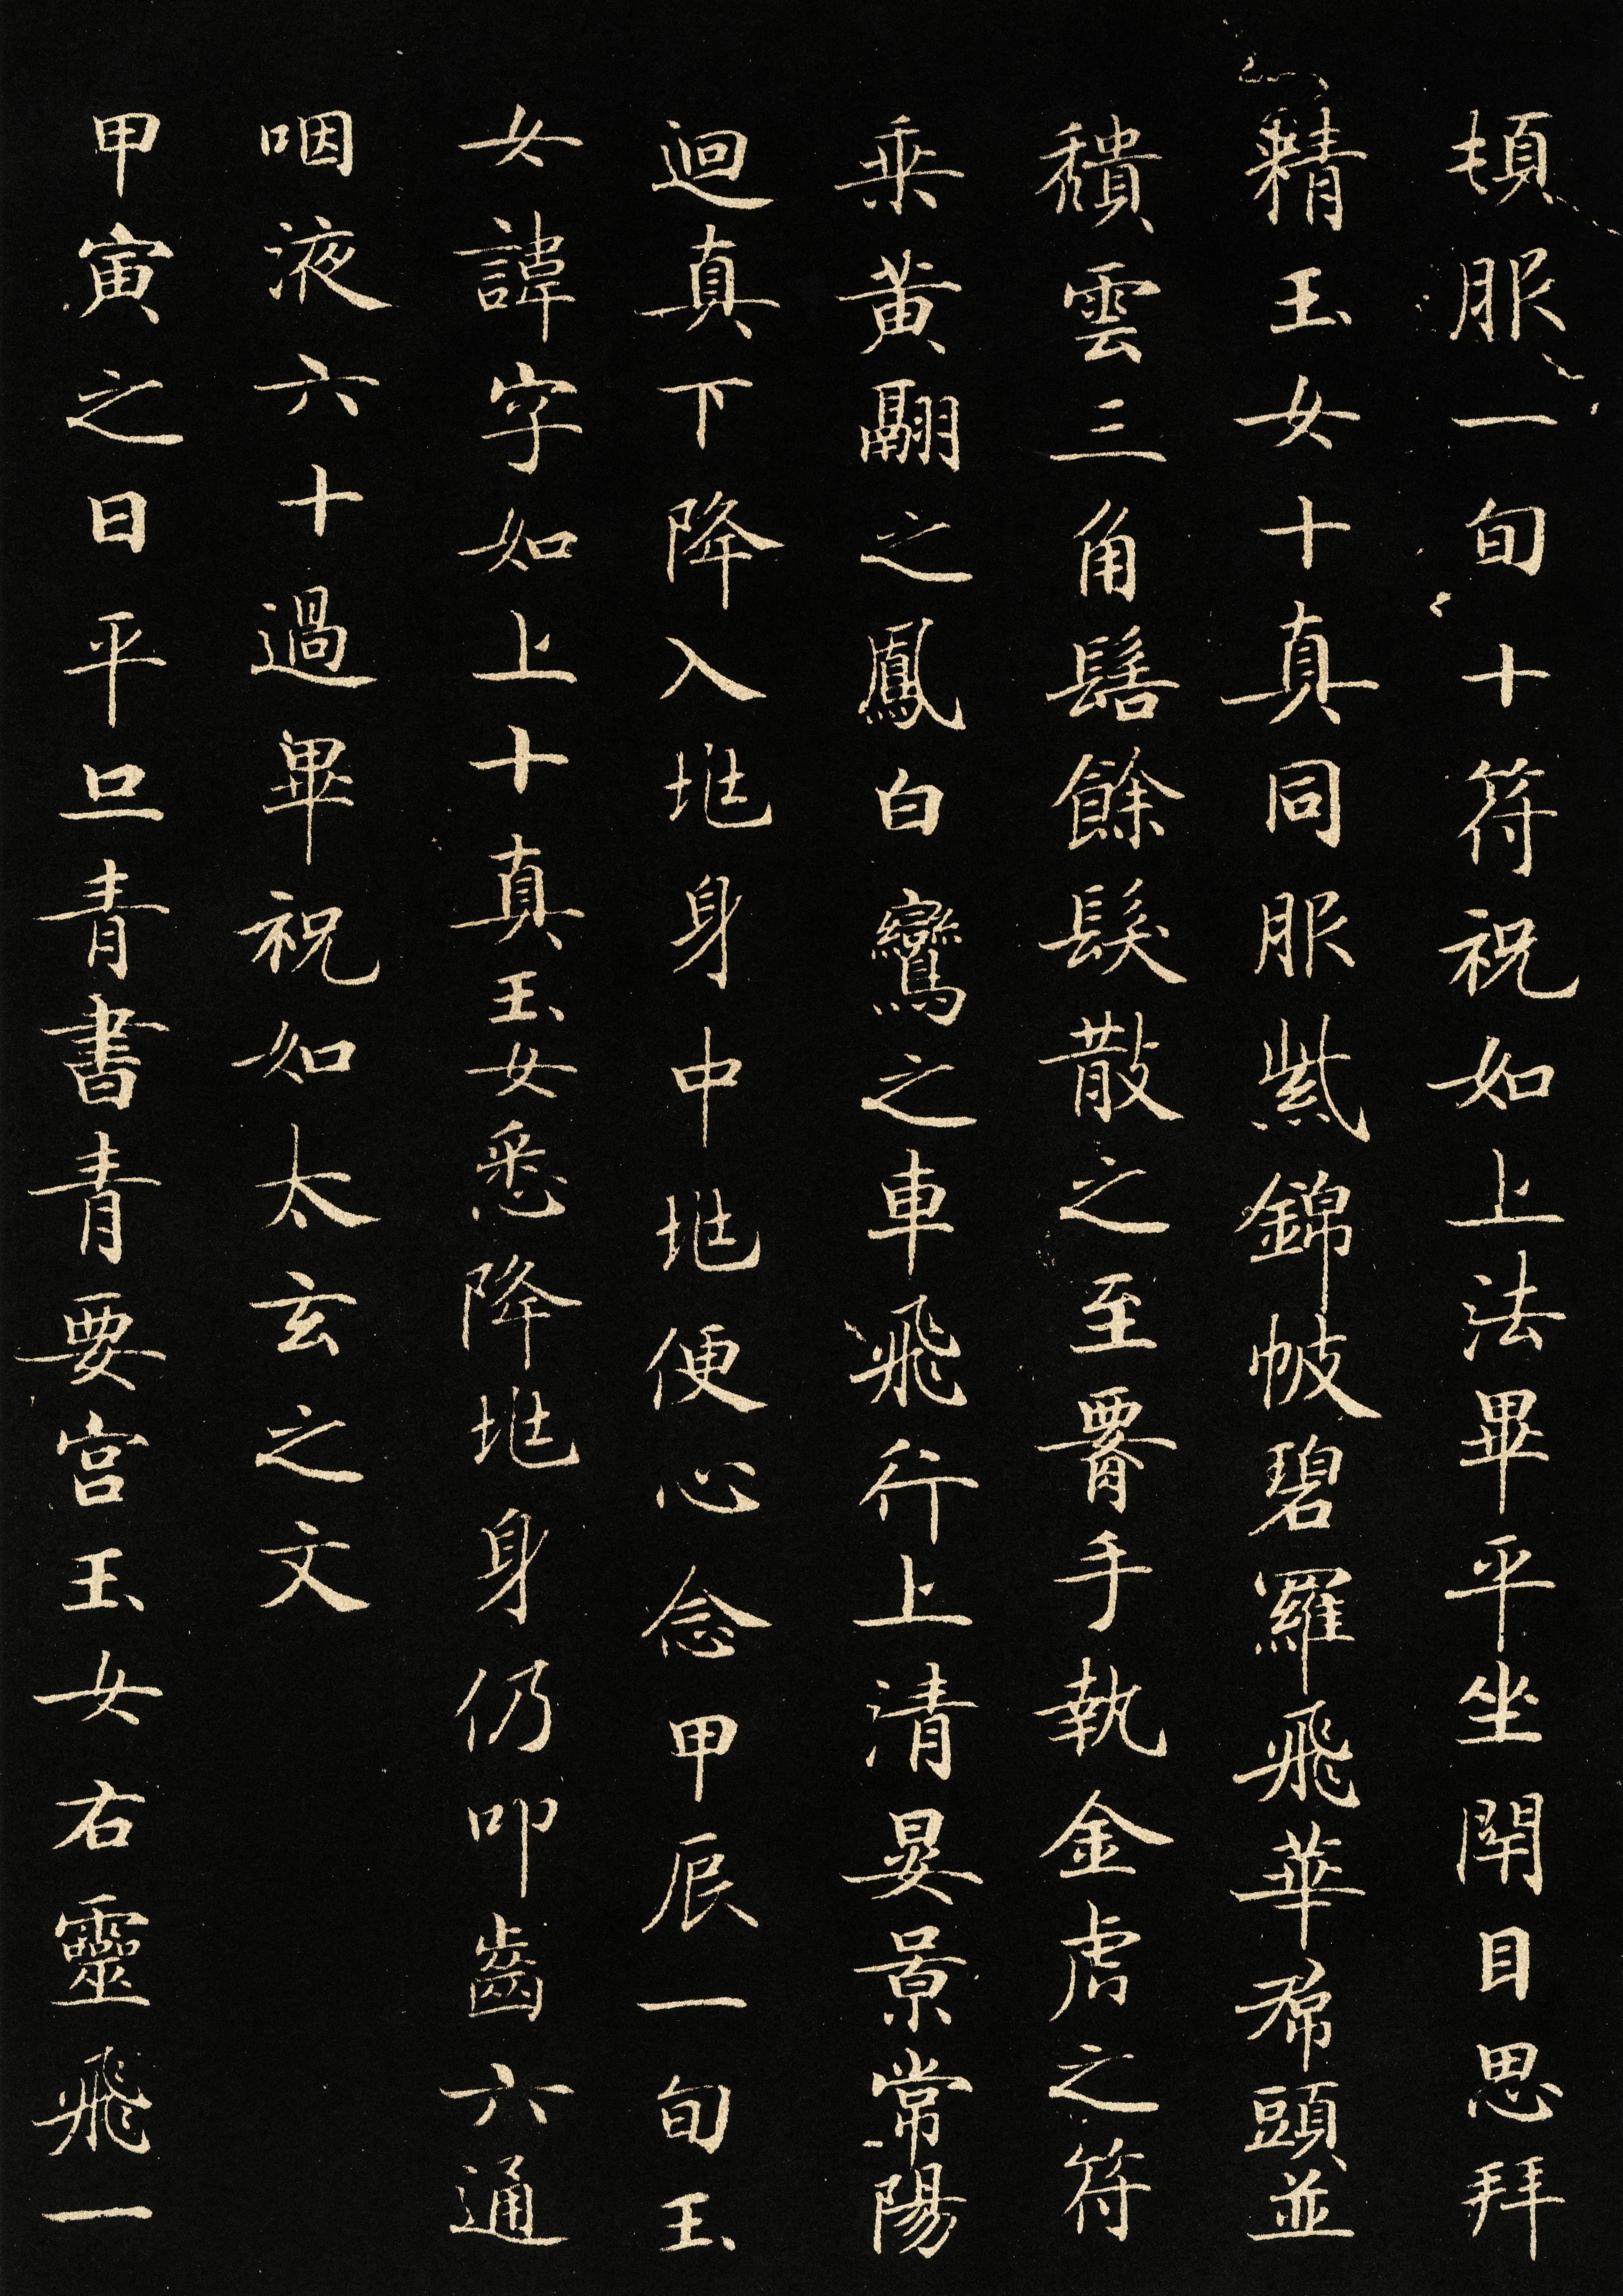 頓服一旬十符祝如上法畢平坐閇目思拜
精玉女十真同服紫錦帔碧羅飛華帬頭並
穨雲三角髻餘髮散之至䯒手執金虎之符
乘黃翮之鳳白鸞之車飛行上清晏景常陽
迴真下降入埊身中埊便心念甲辰一旬玉
女諱字如上十真玉女悉降埊身仍叩齒六通
咽液六十過畢祝如太玄之文
甲寅之日平旦青書青要宮玉女右靈飛一